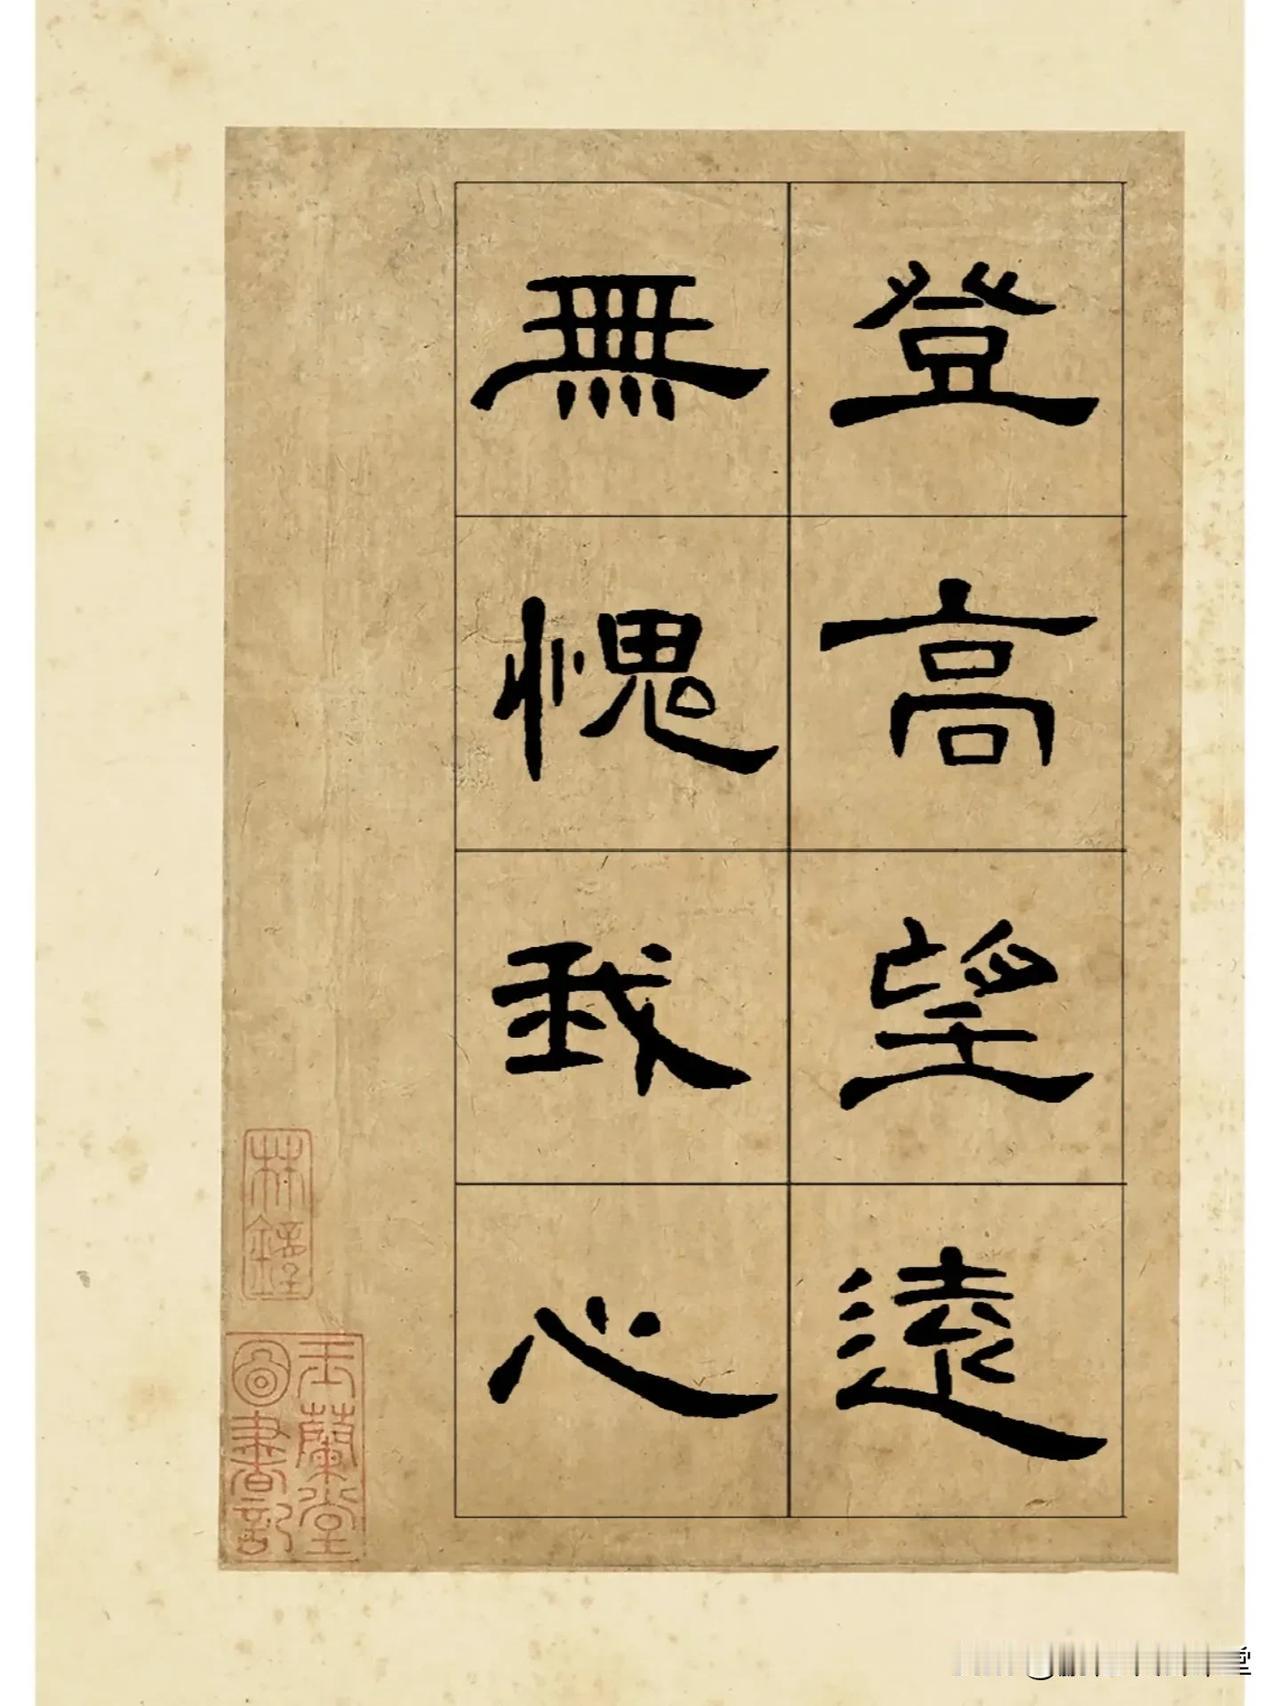 登高望遠
無愧我心
玉蘭堂
圖書記